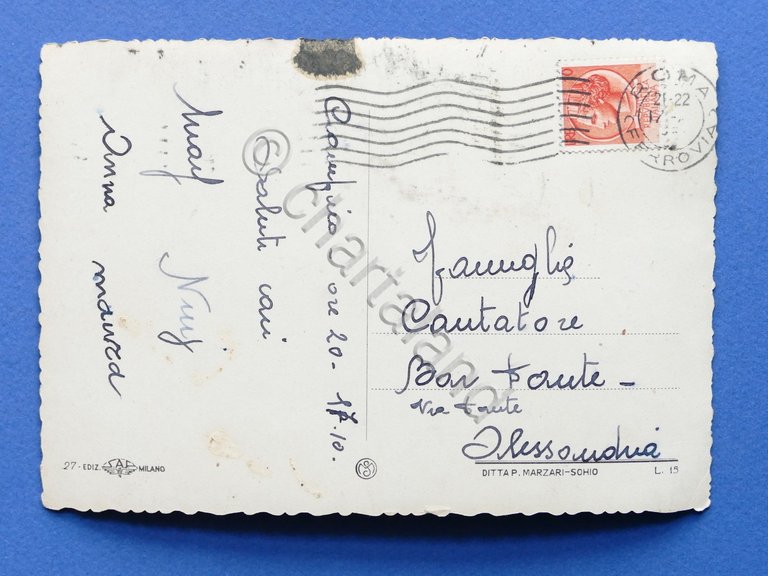 Ciampino ore 20 - 17.10.
Saluti cari
Nuij
Anna
ROMA
FERROVIA
21-22
Famiglia
Cantatore
Bar Dante -
Via Dante
Alessandria
27 - EDIZ. SAF MILANO
DITTA P. MARZARI - SCHIO
L. 15
© chartaland